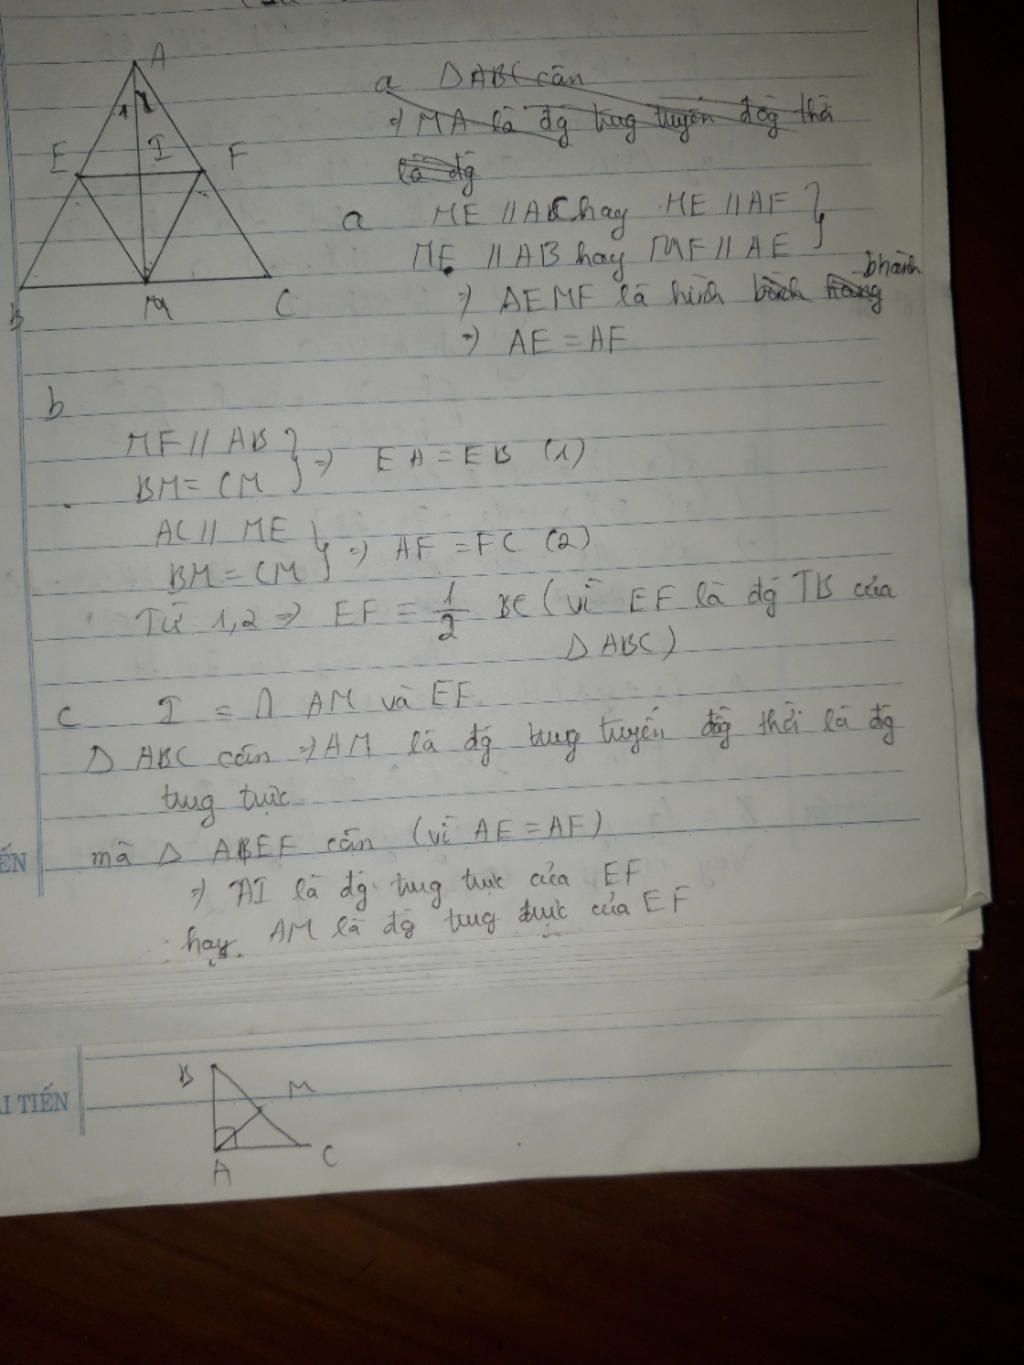 A
1 2
E I F
B M C
a ΔABC cân
=> MA là đg trug tuyến đồg thời
là đg
a ME // AC hay ME // AF
MF // AB hay MF // AE
=> AEMF là hình bình hành
=> AE = AF
b
MF // AB
BM = CM => EA = EB (1)
AC // ME
BM = CM => AF = FC (2)
Từ 1,2 => EF = 1/2 BC (vì EF là đg TB của
Δ ABC)
c I = ∩ AM và EF
Δ ABC cân => AM là đg trug tuyến đồg thời là đg
trug trực
mà Δ AEF cân (vì AE = AF)
=> AI là đg trug trực của EF
hay AM là đg trug trực của EF
ẾN
ẢI TIẾN
B M
A C